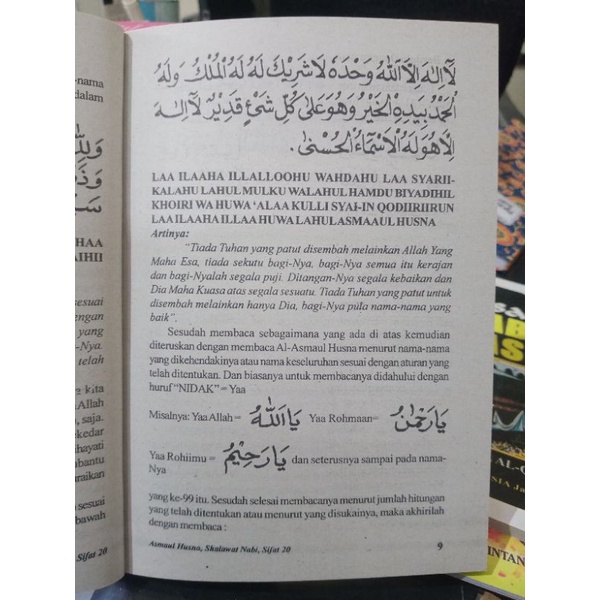 لَآ اِلٰهَ اِلَّا اللّٰهُ وَحْدَهُ لَا شَرِيْكَ لَهُ لَهُ الْمُلْكُ وَلَهُ
الْحَمْدُ بِيَدِهِ الْخَيْرُ وَهُوَ عَلٰى كُلِّ شَيْءٍ قَدِيْرٌ لَآ اِلٰهَ
اِلَّا هُوَ لَهُ الْاَسْمَاءُ الْحُسْنٰى.
LAA ILAAHA ILLALLOOHU WAHDAHU LAA SYARII-
KALAHU LAHUL MULKU WALAHUL HAMDU BIYADIHIL
KHOIRI WA HUWA 'ALAA KULLI SYAI-IN QODIIRIIRUN
LAA ILAAHA ILLAA HUWA LAHULASMAAUL HUSNA
Artinya:
"Tiada Tuhan yang patut disembah melainkan Allah Yang
Maha Esa, tiada sekutu bagi-Nya, bagi-Nya semua itu kerajan
dan bagi-Nyalah segala puji. Ditangan-Nya segala kebaikan dan
Dia Maha Kuasa atas segala sesuatu. Tiada Tuhan yang patut untuk
disembah melainkan hanya Dia, bagi-Nya pula nama-nama yang
baik".
Sesudah membaca sebagaimana yang ada di atas kemudian
diteruskan dengan membaca Al-Asmaul Husna menurut nama-nama
yang dikehendakinya atau nama keseluruhan sesuai dengan aturan yang
telah ditentukan. Dan biasanya untuk membacanya didahului dengan
huruf "NIDAK" = Yaa
Misalnya: Yaa Allah = يَا اَللّٰهُ Yaa Rohmaan= يَا رَحْمٰنُ
Yaa Rohiimu = يَا رَحِيْمُ dan seterusnya sampai pada nama-
Nya
yang ke-99 itu. Sesudah selesai membacanya menurut jumlah hitungan
yang telah ditentukan atau menurut yang disukainya, maka akhirilah
dengan membaca :
Asmaul Husna, Skalawat Nabi, Sifat 20
9
-nama
dalam
HAA
AIHII
sesuai
dengan
yang
-Nya.
telah
kita
Allah
, saja.
ekedar
ihayati
bantu
uraikan
sesuai
bawah
Sifat 20
AL-Q
INTAN